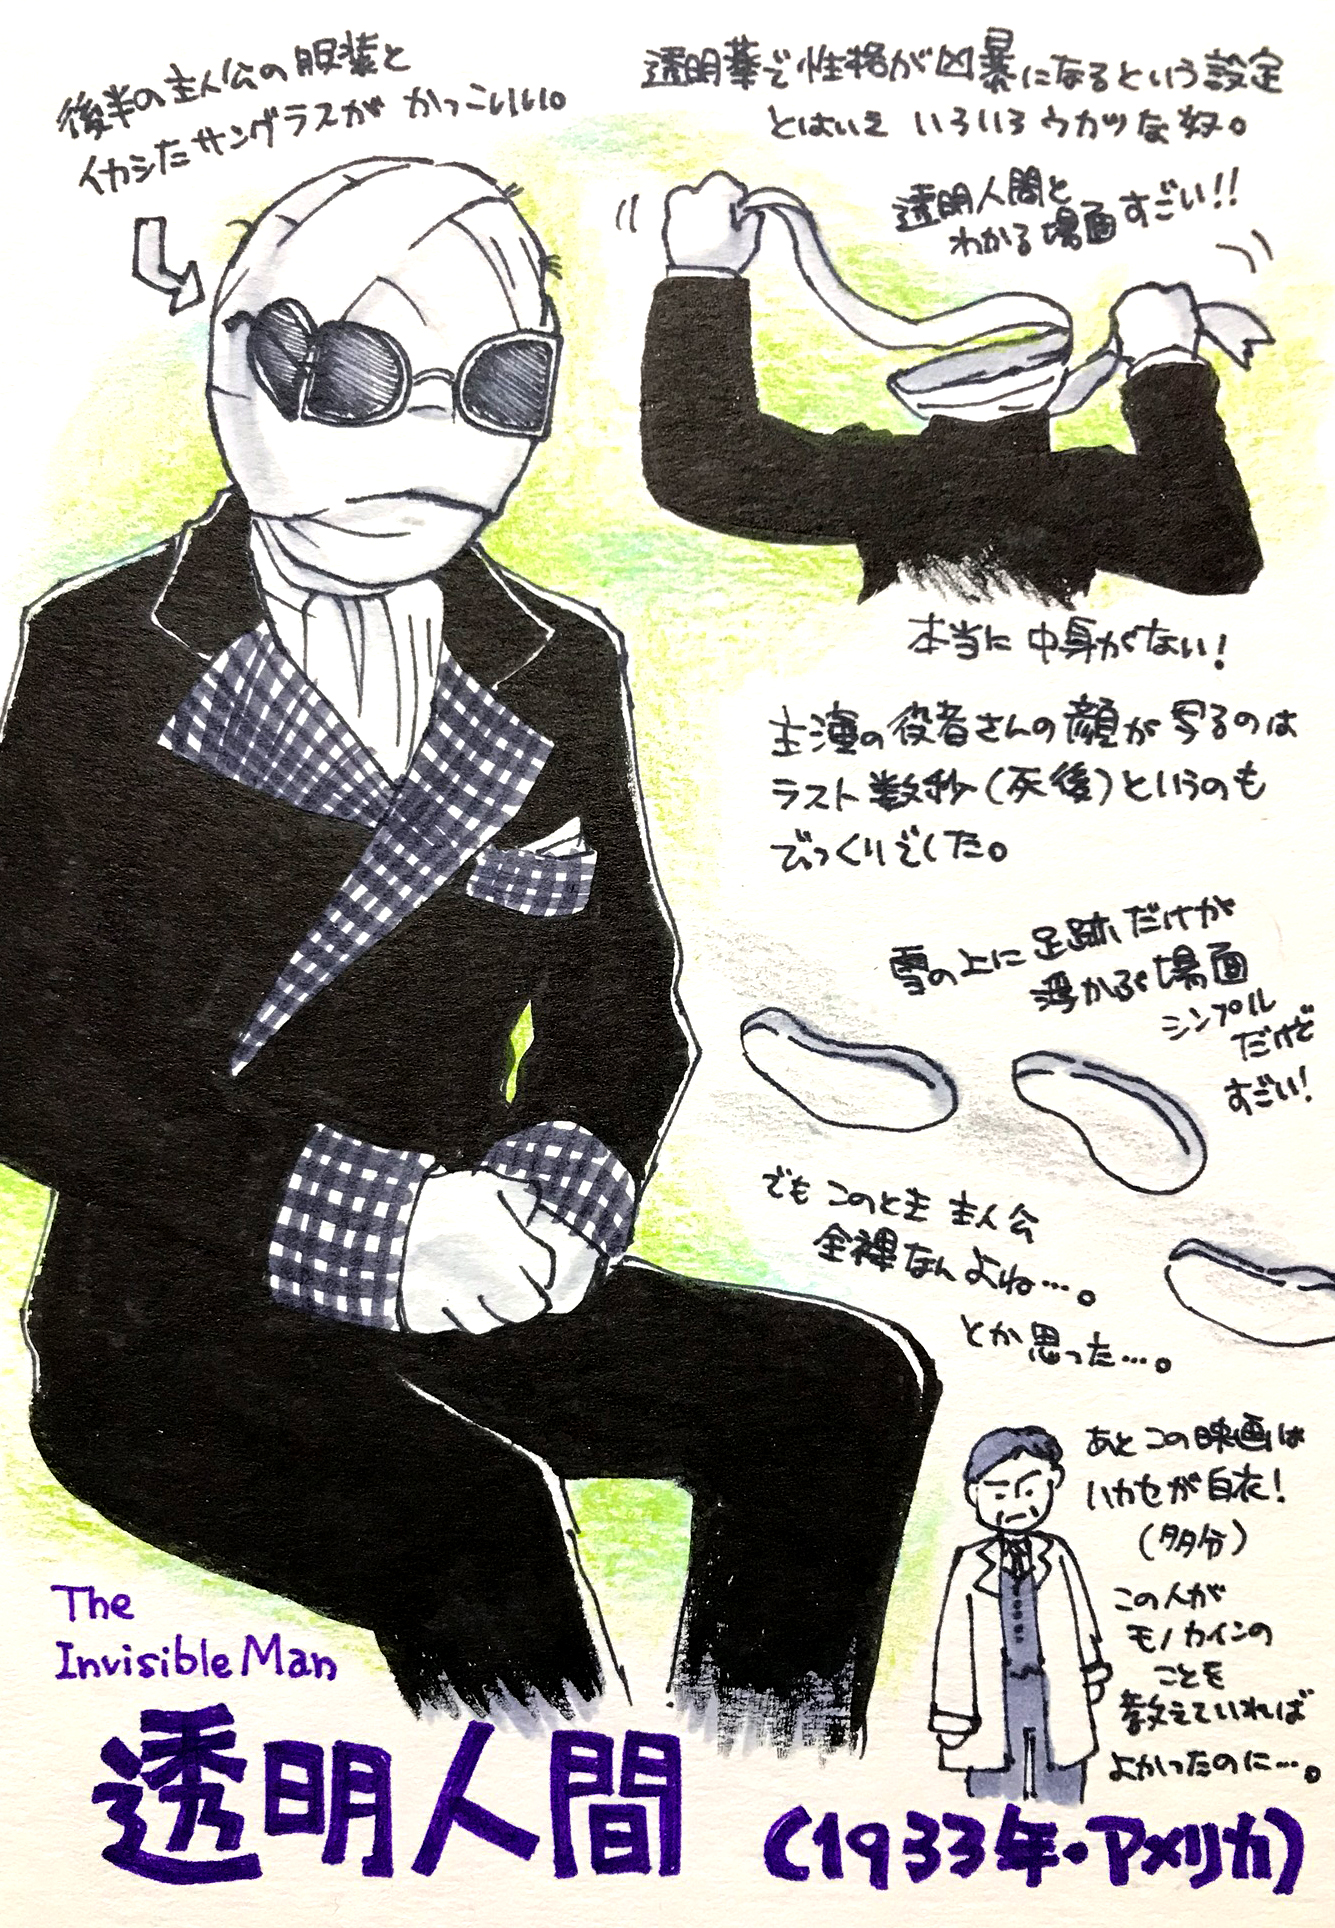 後半の主人公の服装と
イカシたサングラスがかっこいい。
透明薬で性格が凶暴になるという設定
とはいえ いろいろウカツな奴。
透明人間と
わかる場面すごい!!
本当に中身がない!
主演の役者さんの顔が写るのは
ラスト数秒(死後)というのも
びっくりでした。
雪の上に足跡だけが
浮かぶ場面
シンプル
だけど
すごい!
でもこのとき主人公
全裸なんよね…。
とか思った…。
あとこの映画は
ハカセが白衣!
(多分)
この人が
モノカインの
ことを
教えていれば
よかったのに…。
The
Invisible Man
透明人間
(1933年・アメリカ)